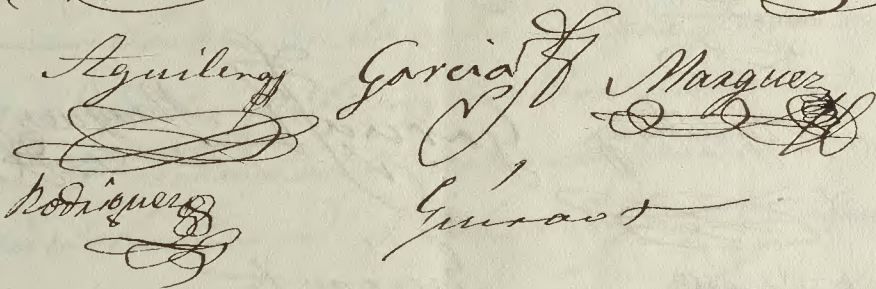 Aguilera Garcia Marquez
Rodriguez Guirao